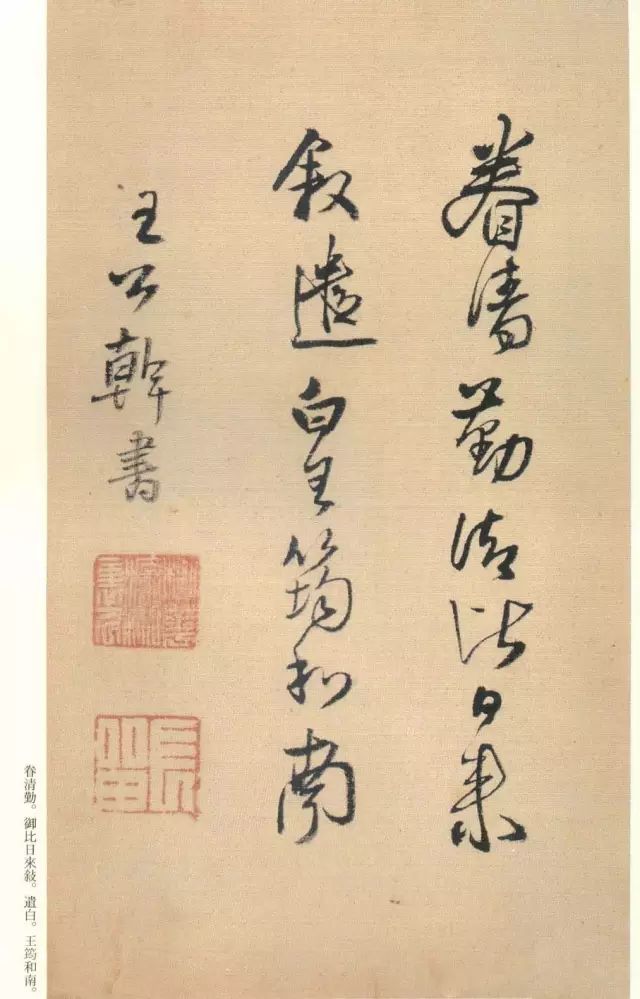 眷清勤御比日來
叙遣白王筠和南
王公幹書
眷清勤。御比日來敍。遣白。王筠和南。